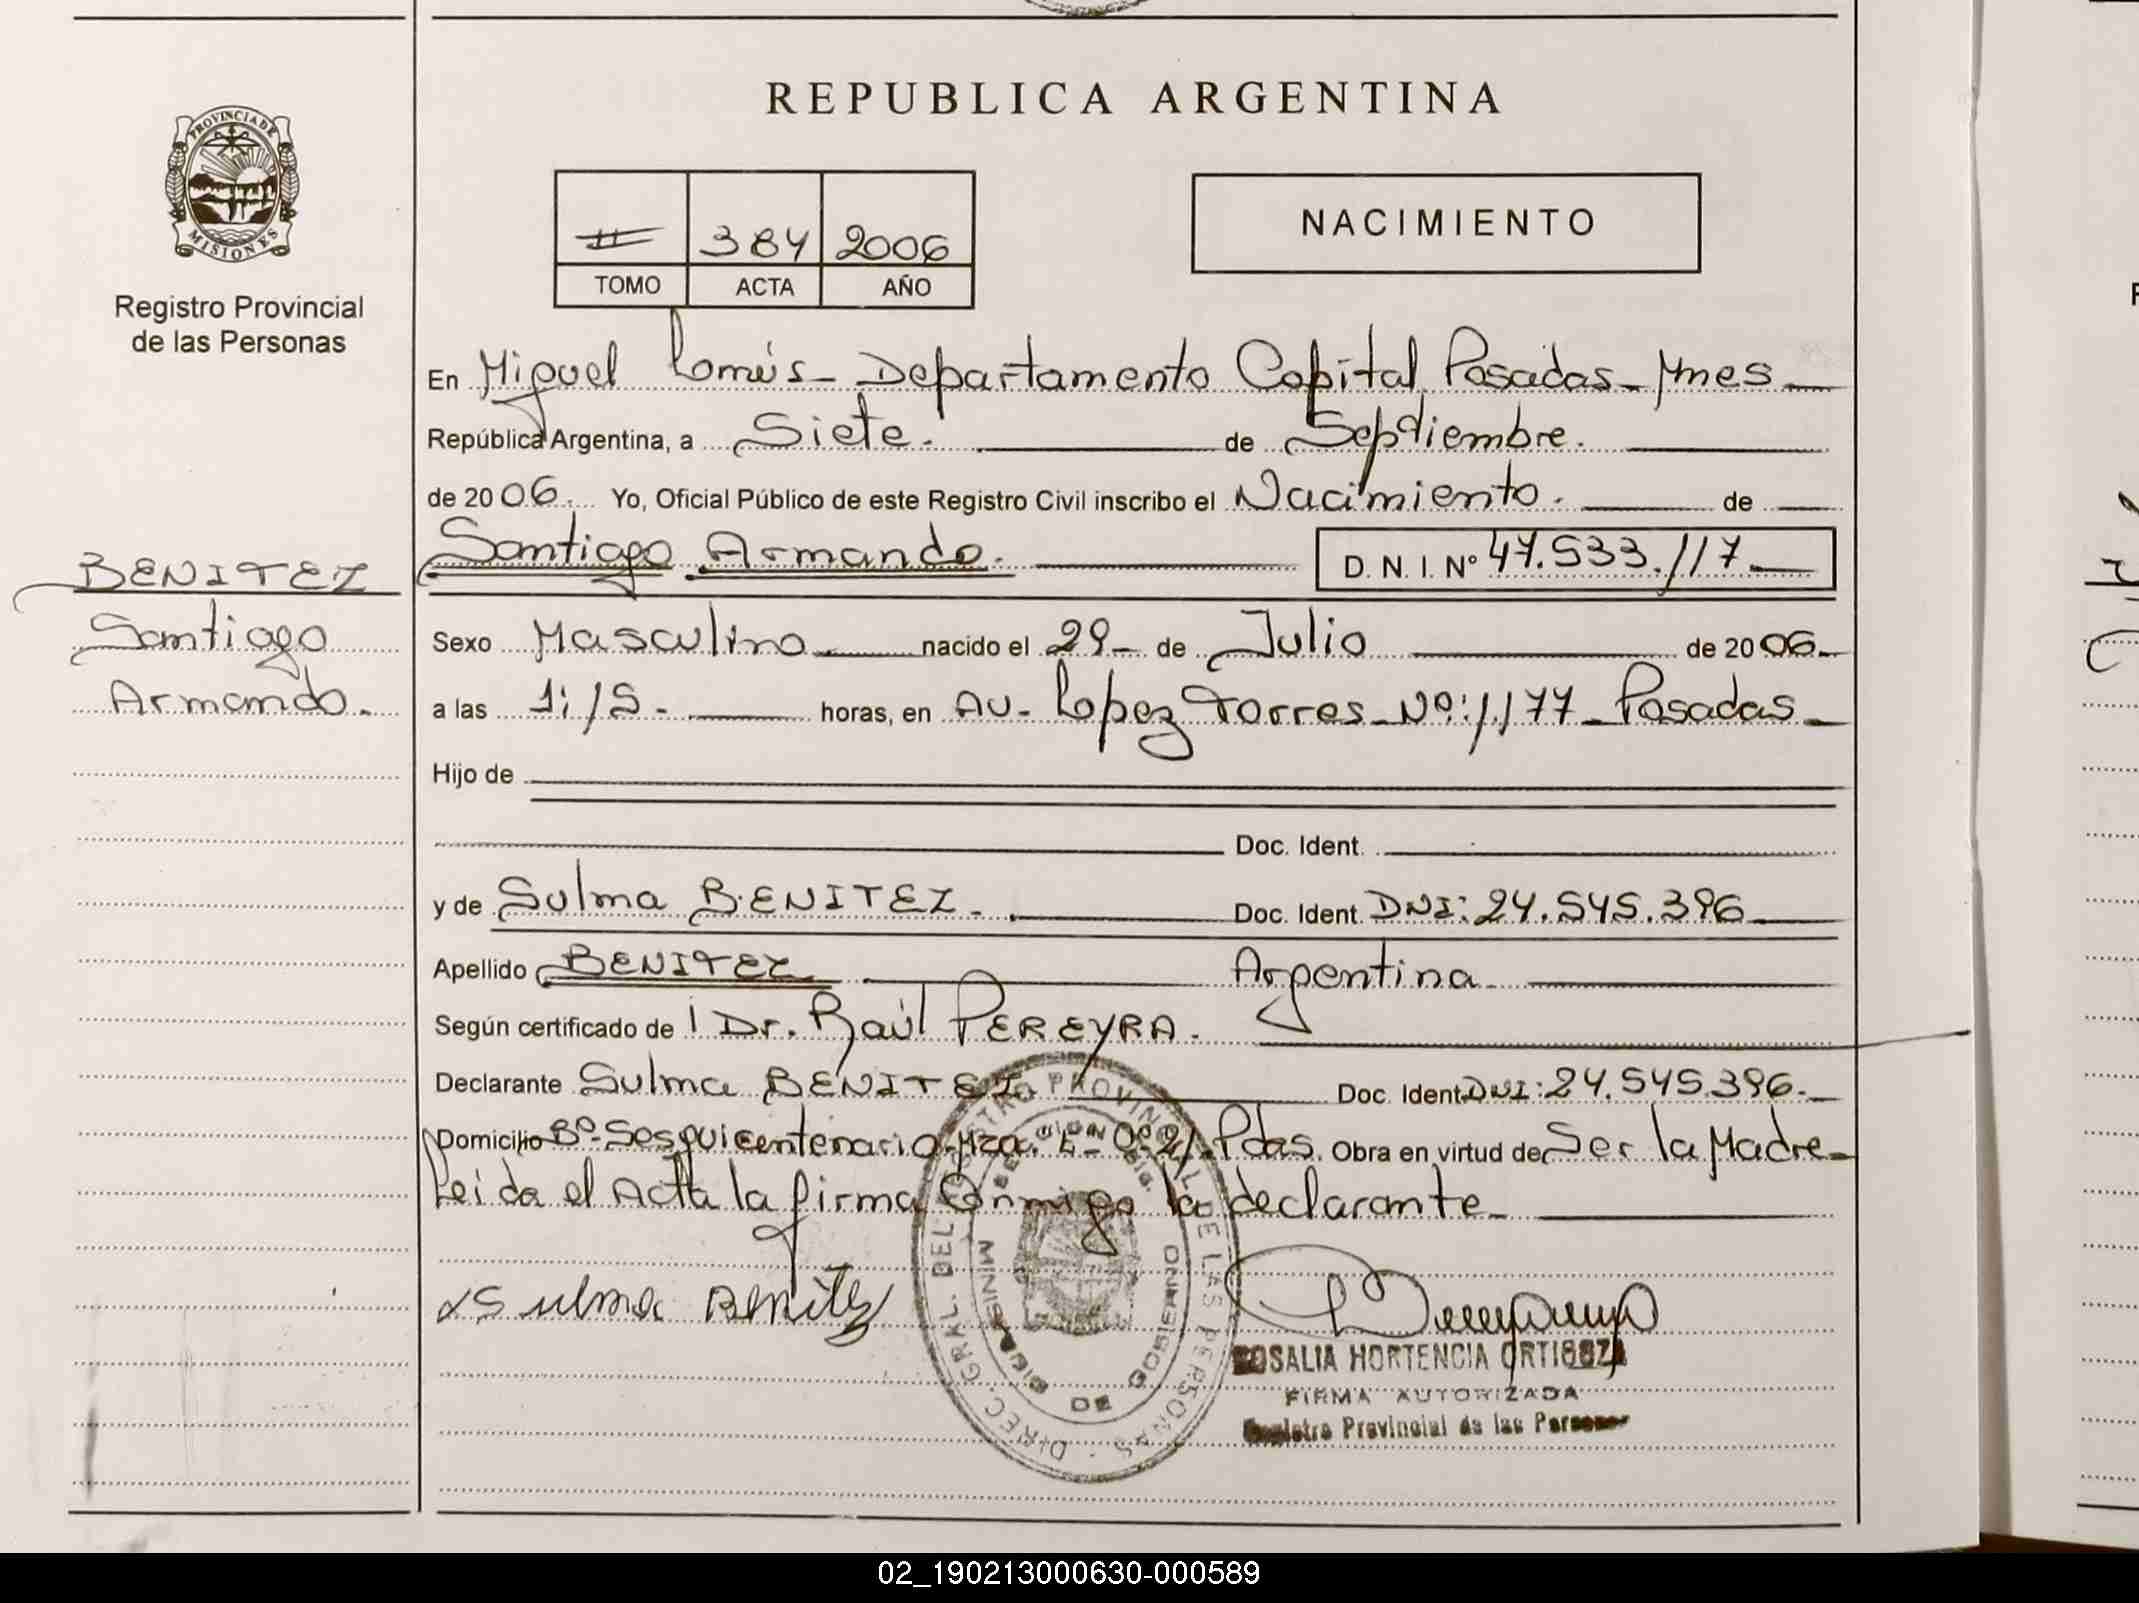 REPUBLICA ARGENTINA
PROVINCIA DE
MISIONES
Registro Provincial
de las Personas
384 2006
TOMO ACTA AÑO
NACIMIENTO
En Miguel Lomús - Departamento Capital Posadas - Mnes
República Argentina, a Siete. de Septiembre.
de 2006. Yo, Oficial Público de este Registro Civil inscribo el Nacimiento. de
Santiago Armando. D. N. I. Nº 47.533.117
BENITEZ
Santiago
Armando.
Sexo Masculino nacido el 29 - de Julio de 2006.
a las 1:15 - horas, en Av - Lopez Torres - Nº: 1.177 - Posadas -
Hijo de
Doc. Ident.
y de Sulma BENITEZ - Doc. Ident. DNI: 24.545.396
Apellido BENITEZ Argentina
Según certificado de Dr. Raúl PEREYRA.
Declarante Sulma BENITEZ Doc. Ident. DNI: 24.545.396.
Domicilio Bº - Sesquicentenario - Mza. Pdas. Obra en virtud de Ser la Madre -
Leida el Acta la firma Conmigo la declarante
Sulma Benitez
DIREC. GRAL. DEL REGISTRO PROVINCIAL DE LAS PERSONAS
DE GOBIERNO
ROSALIA HORTENCIA ORTIGOZA
FIRMA AUTORIZADA
Registro Provincial de las Personas
02_190213000630-000589